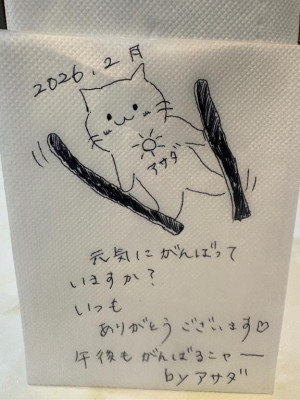 2026.2月
アサダ
元気にがんばって
いますか?
いつも
ありがとうございます♡
午後もがんばるニャー
by アサダ